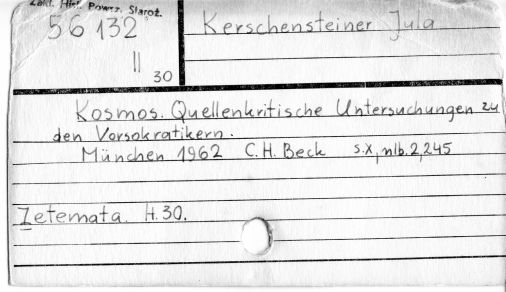 Zakł. Hist. Powsz. Staroż.
56 132
II
30
Kerschensteiner Jula
Kosmos. Quellenkritische Untersuchungen zu
den Vorsokratikern.
München 1962 C.H. Beck s.X, nlb.2, 245
Zetemata. H.30.